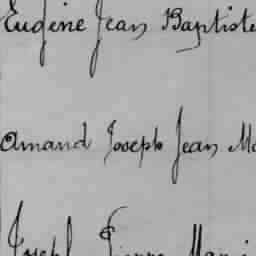 Eugène Jean Baptiste
Amand Joseph Jean Ma
Joseph Pierre Mari